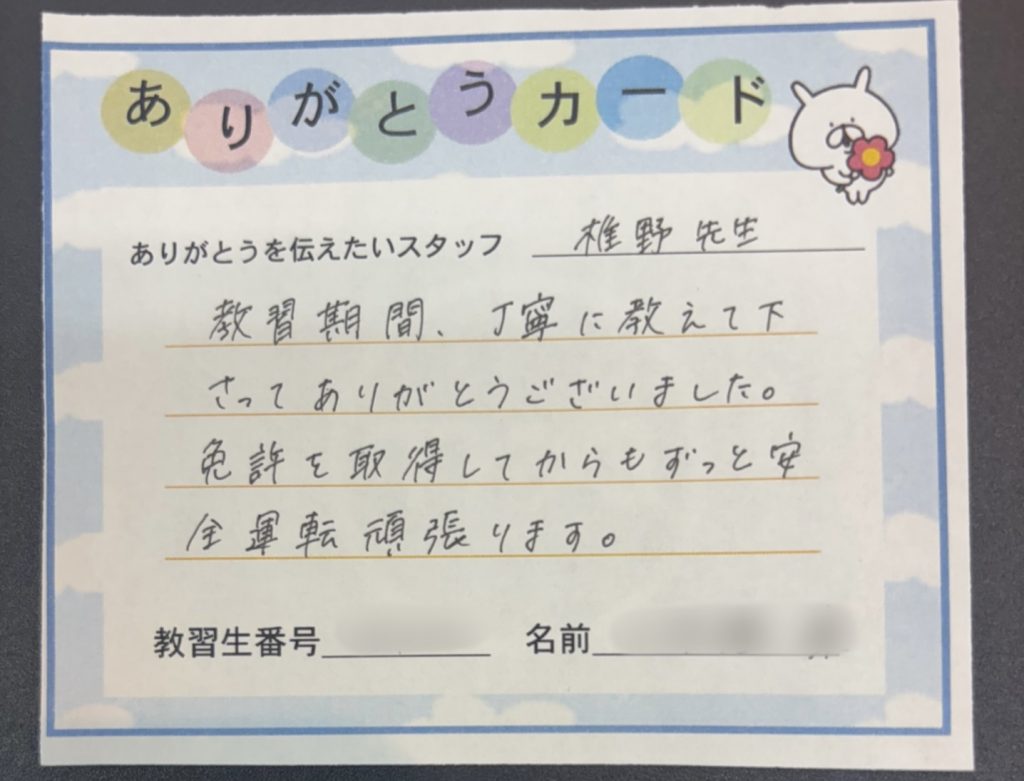 ありがとうカード
ありがとうを伝えたいスタッフ 椎野先生
教習期間、丁寧に教えて下
さってありがとうございました。
免許を取得してからもずっと安
全運転頑張ります。
教習生番号
名前